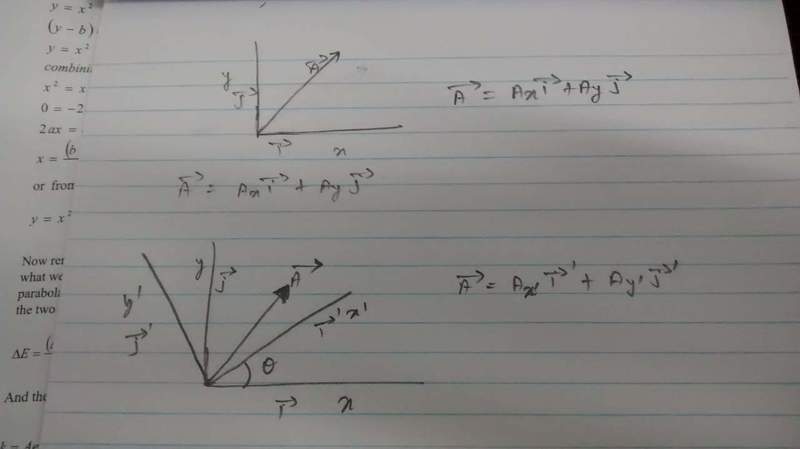 y = x²
(y − b)
y = x²
combini
x² = x
0 = −2
2ax =
x = (b
or from
y = x²
Now rer
what we
paraboli
the two
ΔE = (
And the
k = Ae
y
j⃗
A⃗
i⃗
x
A⃗ = Ax i⃗ + Ay j⃗
A⃗ = Ax i⃗ + Ay j⃗
y'
j⃗'
y
j⃗
A⃗
i⃗' x'
θ
i⃗
x
A⃗ = Ax' i⃗' + Ay' j⃗'